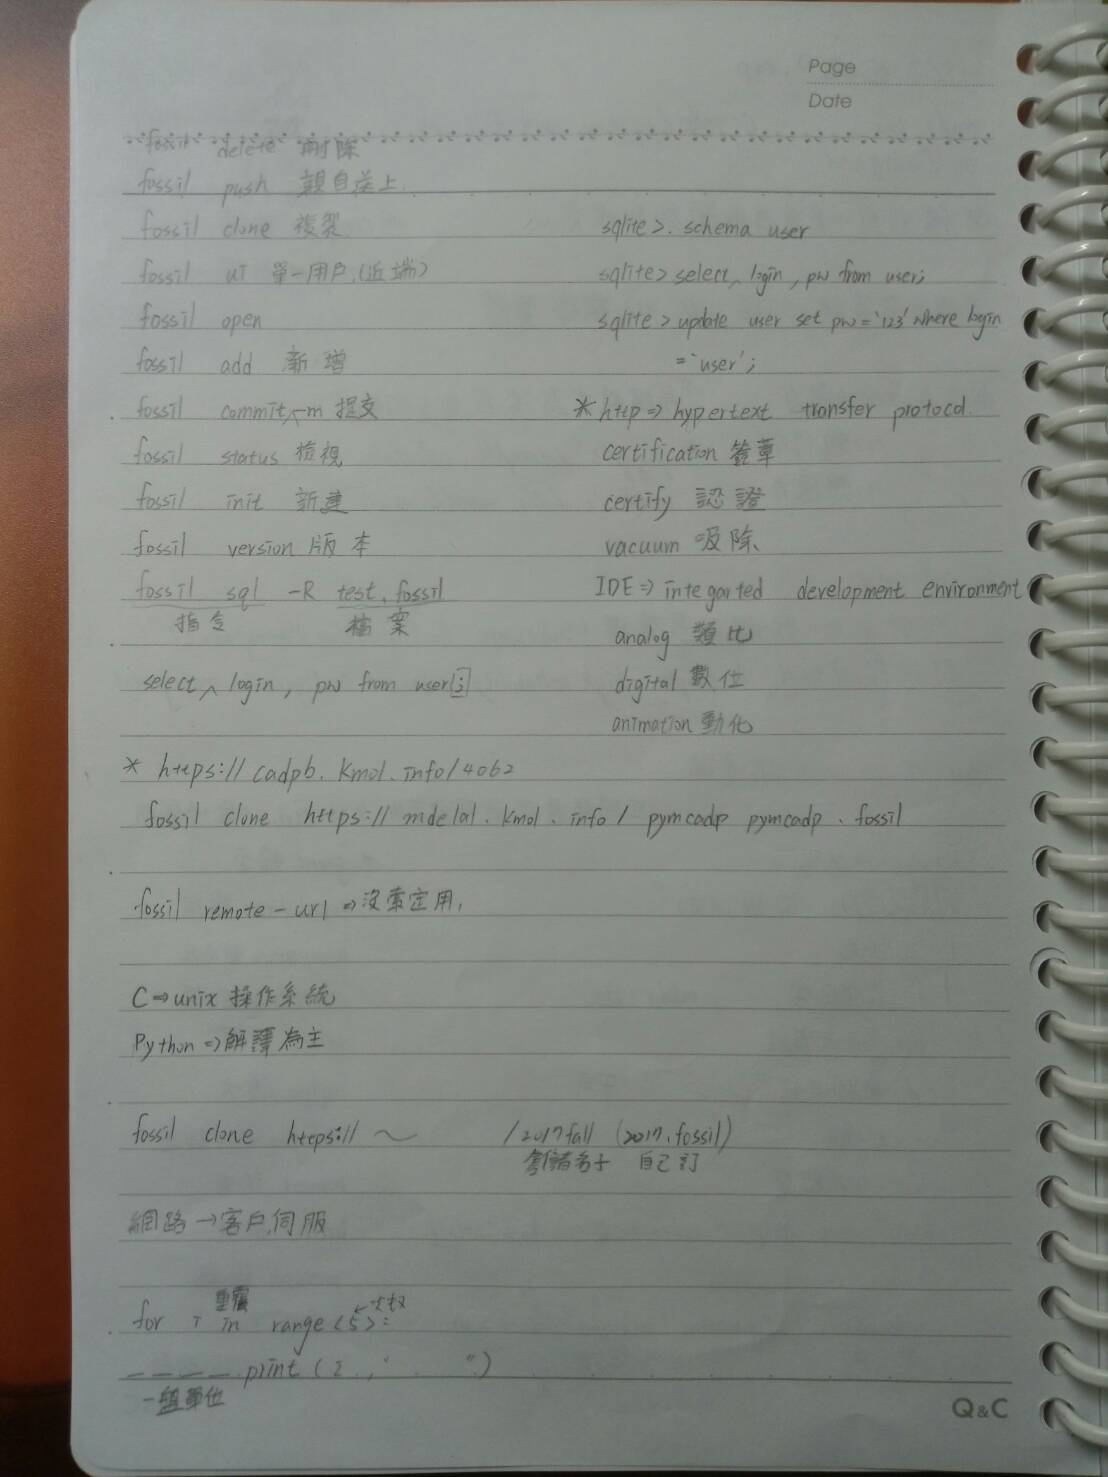 Page
Date
fossil delete 刪除
fossil push 親自送上.
fossil clone 複製
fossil ui 單一用戶.(近端)
fossil open
fossil add 新增
fossil commit^-m 提交
fossil status 檢視
fossil init 新建
fossil version 版本
fossil sql -R test.fossil
指令 檔案
select^ login, pw from user;
sqlite>. schema user
sqlite> select^ login, pw from user;
sqlite> update user set pw='123' where login
='user';
*http => hypertext transfer protocol.
certification 簽章
certify 認證
vacuum 吸除
IDE => integarted development environment
analog 類比
digital 數位
animation 動化
* https://cadpb.kmol.info/4062
fossil clone https://mdelal.kmol.info/pymcadp pymcadp.fossil
fossil remote-url => 沒索定用,
C => unix 操作系統
Python => 解譯為主
fossil clone https:// ~ /2017fall (2017.fossil)
倉儲名字 自己訂
網路 → 客戶,伺服
重覆 ←次數
for i in range(5):
_ _ _ _ print(2 ," ")
一個單位
Q&C